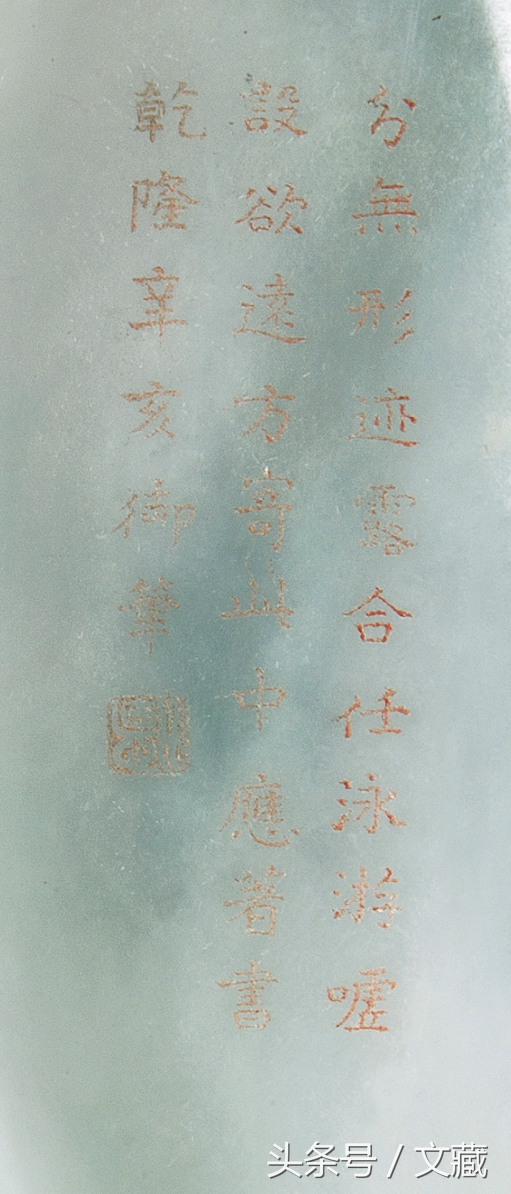 分無形迹露合任泳游噓
設欲遠方寄此中應著書
乾隆辛亥御筆
头条号 / 文藏